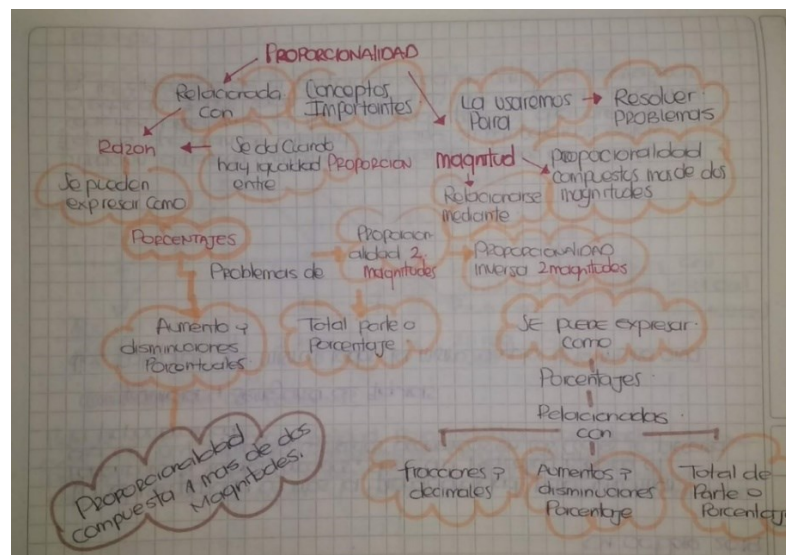 PROPORCIONALIDAD
Relacionada
con
Conceptos
Importantes
La usaremos
Para
Resolver
PROBLEMAS
Razon
Se da Cuando
hay igualdad PROPORCION
entre
magnitud
propocionalidad
compuestas mas de dos
magnitudes
Se pueden
expresar Como
Relacionarse
mediante
PORCENTAJES
Problemas de
Proporcion
alidad 2
magnitudes
PROPORCIONALIDAD
inversa 2 magnitudes
Aumento y
disminuciones
Porcentuales
Total Parte o
Porcentaje
SE PUEDE expresar
como
Porcentajes
Relacionados
con
Proporcionalidad
compuesta 1 mas de dos
Magnitudes.
fracciones y
decimales
Aumentos y
disminuciones
Porcentaje
Total de
Parte o
Porcentaje